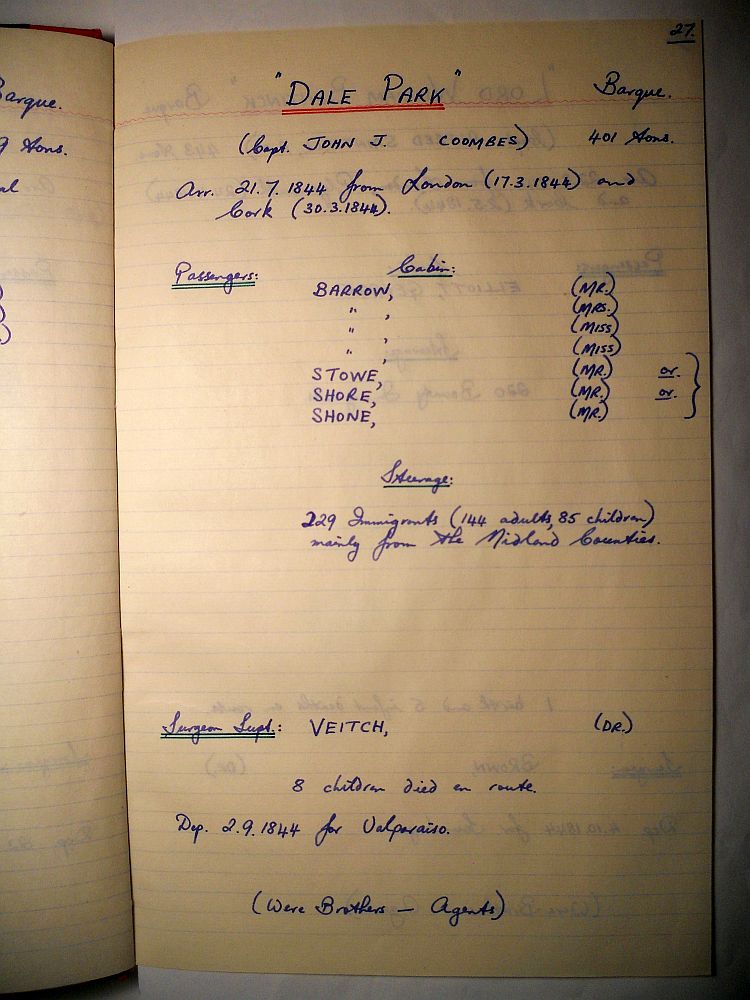 27.
"DALE PARK" Barque.
(Capt. JOHN J. COOMBES) 401 tons.
Arr. 21.7.1844 from London (17.3.1844) and
Cork (30.3.1844).
Passengers: Cabin:
BARROW, (MR.)
" , (MRS.)
" , (MISS)
" , (MISS)
STOWE, (MR.) or.
SHORE, (MR.) or.
SHONE, (MR.)
Steerage:
229 Immigrants (144 adults, 85 children)
mainly from the Midland Counties.
Surgeon Supt.: VEITCH, (DR.)
8 children died en route.
Dep. 2.9.1844 for Valparaiso.
(Were Brothers — Agents)
arque.
9 tons.
al